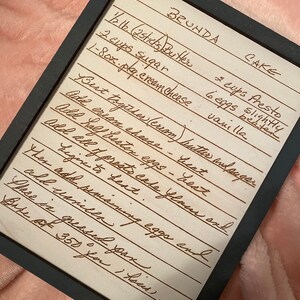 BRENDA CAKE
½ lb (2 sticks) Butter
2 cups sugar
1-8oz. pkg cream cheese
2 cups Presto
6 eggs slightly
vanilla
Beat together (cream) butter and sugar
Add cream cheese - beat
Add half eggs - beat
Add all Presto cake flour and
begin to beat.
Then add remaining eggs and
add vanilla.
pan
Bake at 350° for 1 hour.